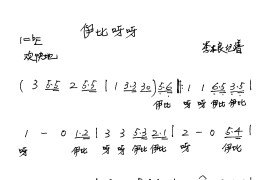 伊比呀呀
1=♭E
欢快地
(3 5·5 2 5·5 | 1 3·3 30) 5·6 ‖: 1 1 6·5 3·5 |
伊比 呀 呀 伊比 伊比
1 - 0 1·2 | 3 3 5·3 2·1 | 2 - 0 5·4 |
呀 伊比 呀 呀 伊比 伊比 呀 伊比